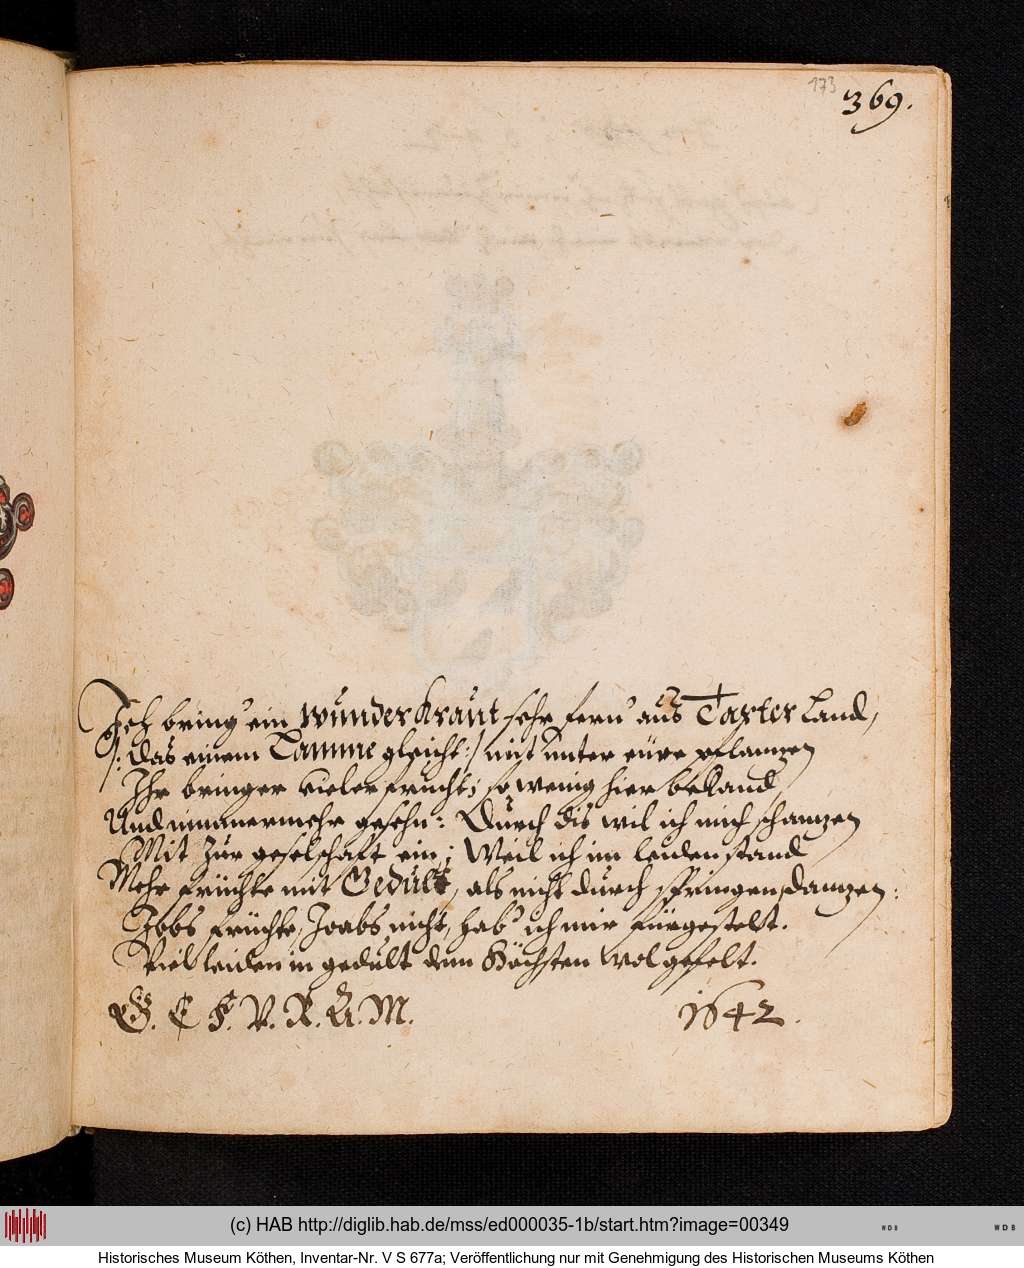 173
369.
Ich bring' ein wunder Kraut sehr fern' aus Taxter Land,
/: das einem Tamme gleicht :/ mit unter eüre pflantzen
Ihr bringer vieler frucht; so wenig hier bekand,
Und nimmermehr gesehn: Durch dis wil ich mich schantzen
Mit zur geselschaft ein; Weil ich im leidenstand
Mehr früchte mit Gedült, als nicht durch springen, dantzen:
Jobs früchte, Joabs nicht, hab' ich mir fürgestelt.
Viel leiden in gedült dem Höchsten wol gefelt.
G. C F. V. R. A. M.
1642.
(c) HAB http://diglib.hab.de/mss/ed000035-1b/start.htm?image=00349
WDB
WDB
Historisches Museum Köthen, Inventar-Nr. V S 677a; Veröffentlichung nur mit Genehmigung des Historischen Museums Köthen